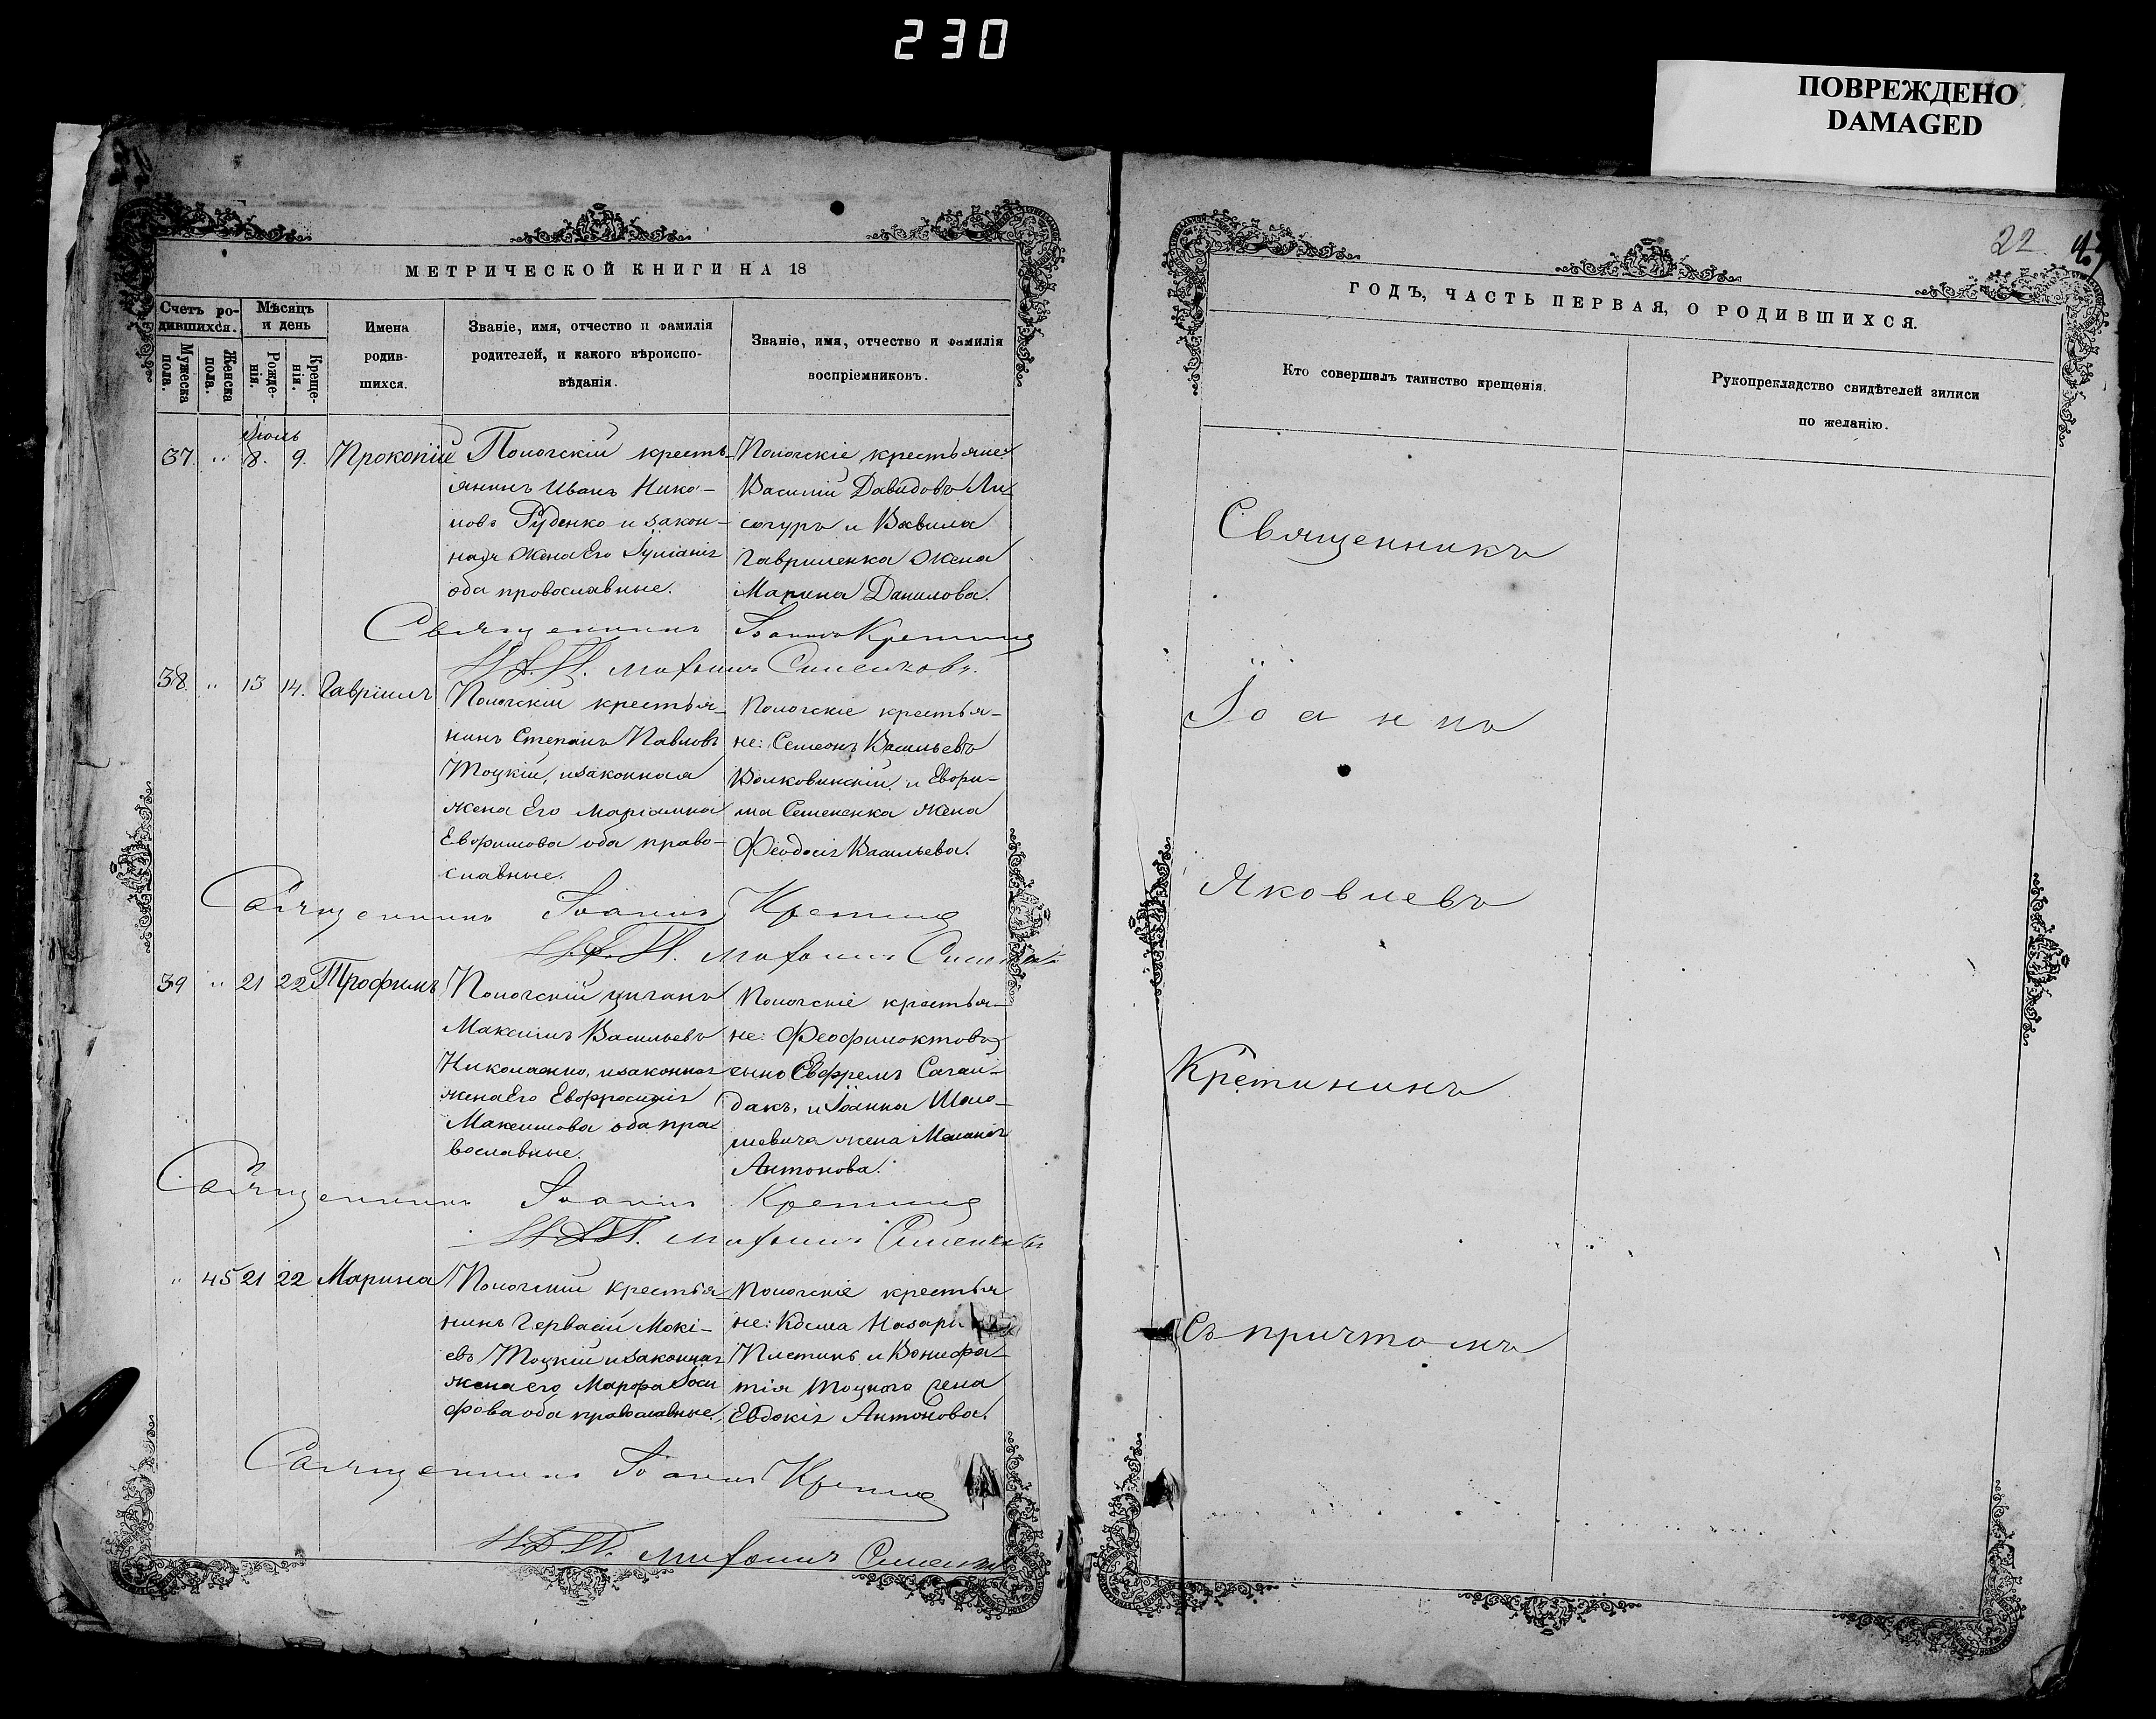 230
ПОВРЕЖДЕНО
DAMAGED
МЕТРИЧЕСКОЙ КНИГИ НА 18
Счетъ ро-
дившихся.
Мужеска
пола.
Женска
пола.
Мѣсяцъ
и день
Рожде-
нія.
Креще-
нія.
Имена
родив-
шихся.
Званіе, имя, отчество и фамилія
родителей, и какого вѣроиспо-
вѣданія.
Званіе, имя, отчество и фамилія
воспріемниковъ.
Іюль
37. " 8. 9. Прокопій
Пологскій кресть-
янинъ Иванъ Нико-
ловъ Руденко и закон-
ная жена Его Іуліанія
оба провославные.
Пологскіе крестьяне:
Василій Давидовъ Ли-
согуръ и Вавила
Гавриленка жена
Марина Данилова.
Священникъ Іоаннъ
38. " 13 14. Гавріилъ
Пологскій крестья-
нинъ Степанъ Павловъ
Тоцкій, и законная
жена Его Маріанна
Евфимова оба право-
славные.
Пологскіе крестья-
не: Семеонъ Васильевъ
Волковинскій, и Евфи-
ма Семененка жена
Феодосія Васильева.
Священникъ Іоаннъ
39 " 21 22 Трофимъ
Пологскій циганъ
Максимъ Васильевъ
Николаенко, и законная
жена Его Евфросинія
Максимова оба пра-
вославные.
Пологскіе крестья-
не: Феофилактовъ
сынъ Евфремъ Сагай-
дакъ, и Іоанна Шало-
жена Меланія
Антонова.
Священникъ Іоаннъ
" 45 21 22 Марина
Пологскій крестья-
нинъ Гервасій Мокі-
евъ Тоцкій и законная
жена его Марфа Іоси
фова оба православные.
Пологскіе крестья
не: Косма
Плетинь и Вонифа-
тія Тоцкого жена
Евдокія Антонова.
Священникъ Іоаннъ
22
ГОДЪ, ЧАСТЬ ПЕРВАЯ, О РОДИВШИХСЯ.
Кто совершалъ таинство крещенія.
Рукоприкладство свидѣтелей записи
по желанію.
Священникъ
Іоаннъ
Яковлевъ
Кретининъ
Съ причтомъ